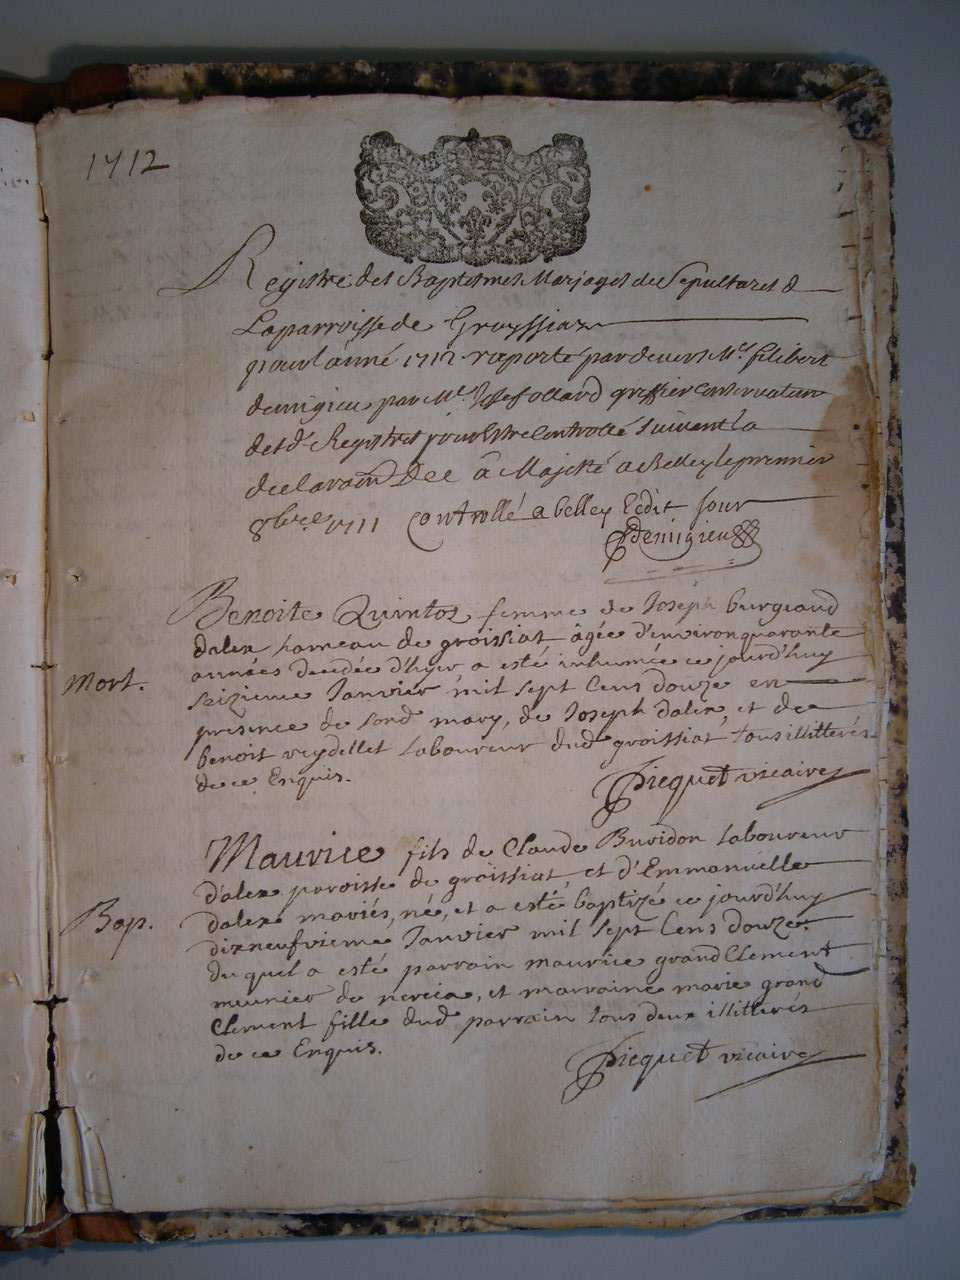 1712
Registre des Baptesmes Mariages de Sepultures d
La parroisse de Groyssiaz
pour l'année 1712 raporté par devers Mc filibert
demigieu par Mc Josef ollard greffier conservateur
desd Registres pour Estre Controllé suivent la
declaraon De Sa Majesté a Belley le premier
8bre 1711 Controllé a belley Ledit Jour
Demigieu
Benoite Quintoz femme de Joseph burgeaud
dalex hameau de groissiat âgée d'environ quarante
années décédée d'hyer a esté inhumée ce jourd'huy
Mort.
seizieme Janvier mil sept Cens douze en
presence de sond mary, de Joseph dalex, et de
benoit reydellet laboureur dud groissiat tous illiterés
de ce Enquis.
Picquet vicaire
Maurice fils de Claude Buvidon laboureur
d'alex paroisse de groissiat, et d'Emmanuelle
dalex mariés, né, et a esté baptizé ce jourd'huy
Bap.
dixneufvieme Janvier mil sept Cens douze.
duquel a esté parrain maurice grandClement
meunier de nercia, et marraine marie grand
Clement fille dud parrain tous deux illiterés
de ce Enquis.
Picquet vicaire